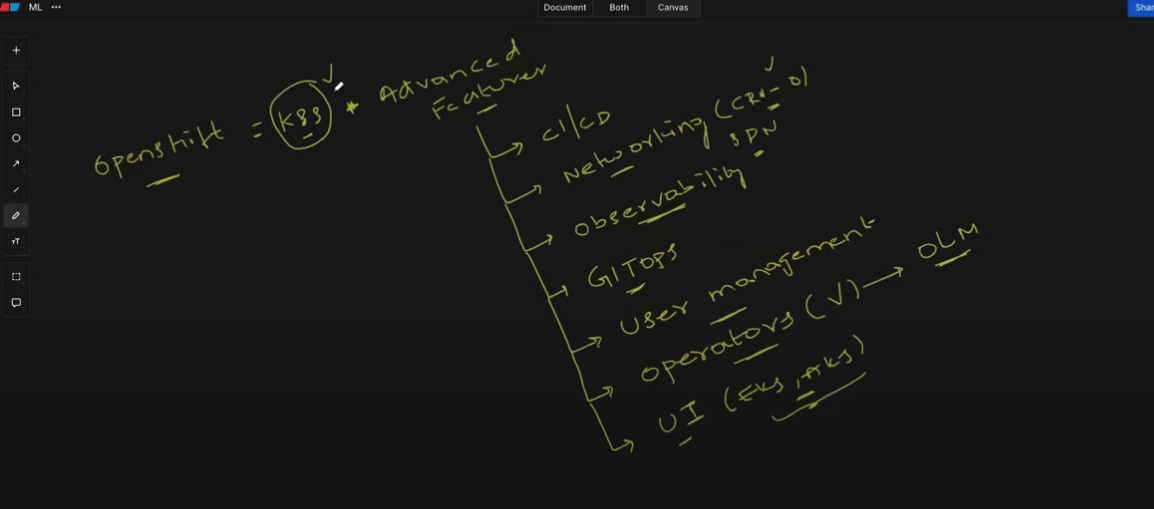 ML ...
Document Both Canvas
Shar
Openshift = K8S * Advanced
Features
CI/CD
Networking (CRI-O)
SDN
Observability
GITOPS
User management
Operators (√) → OLM
UI (EKS, AKS)